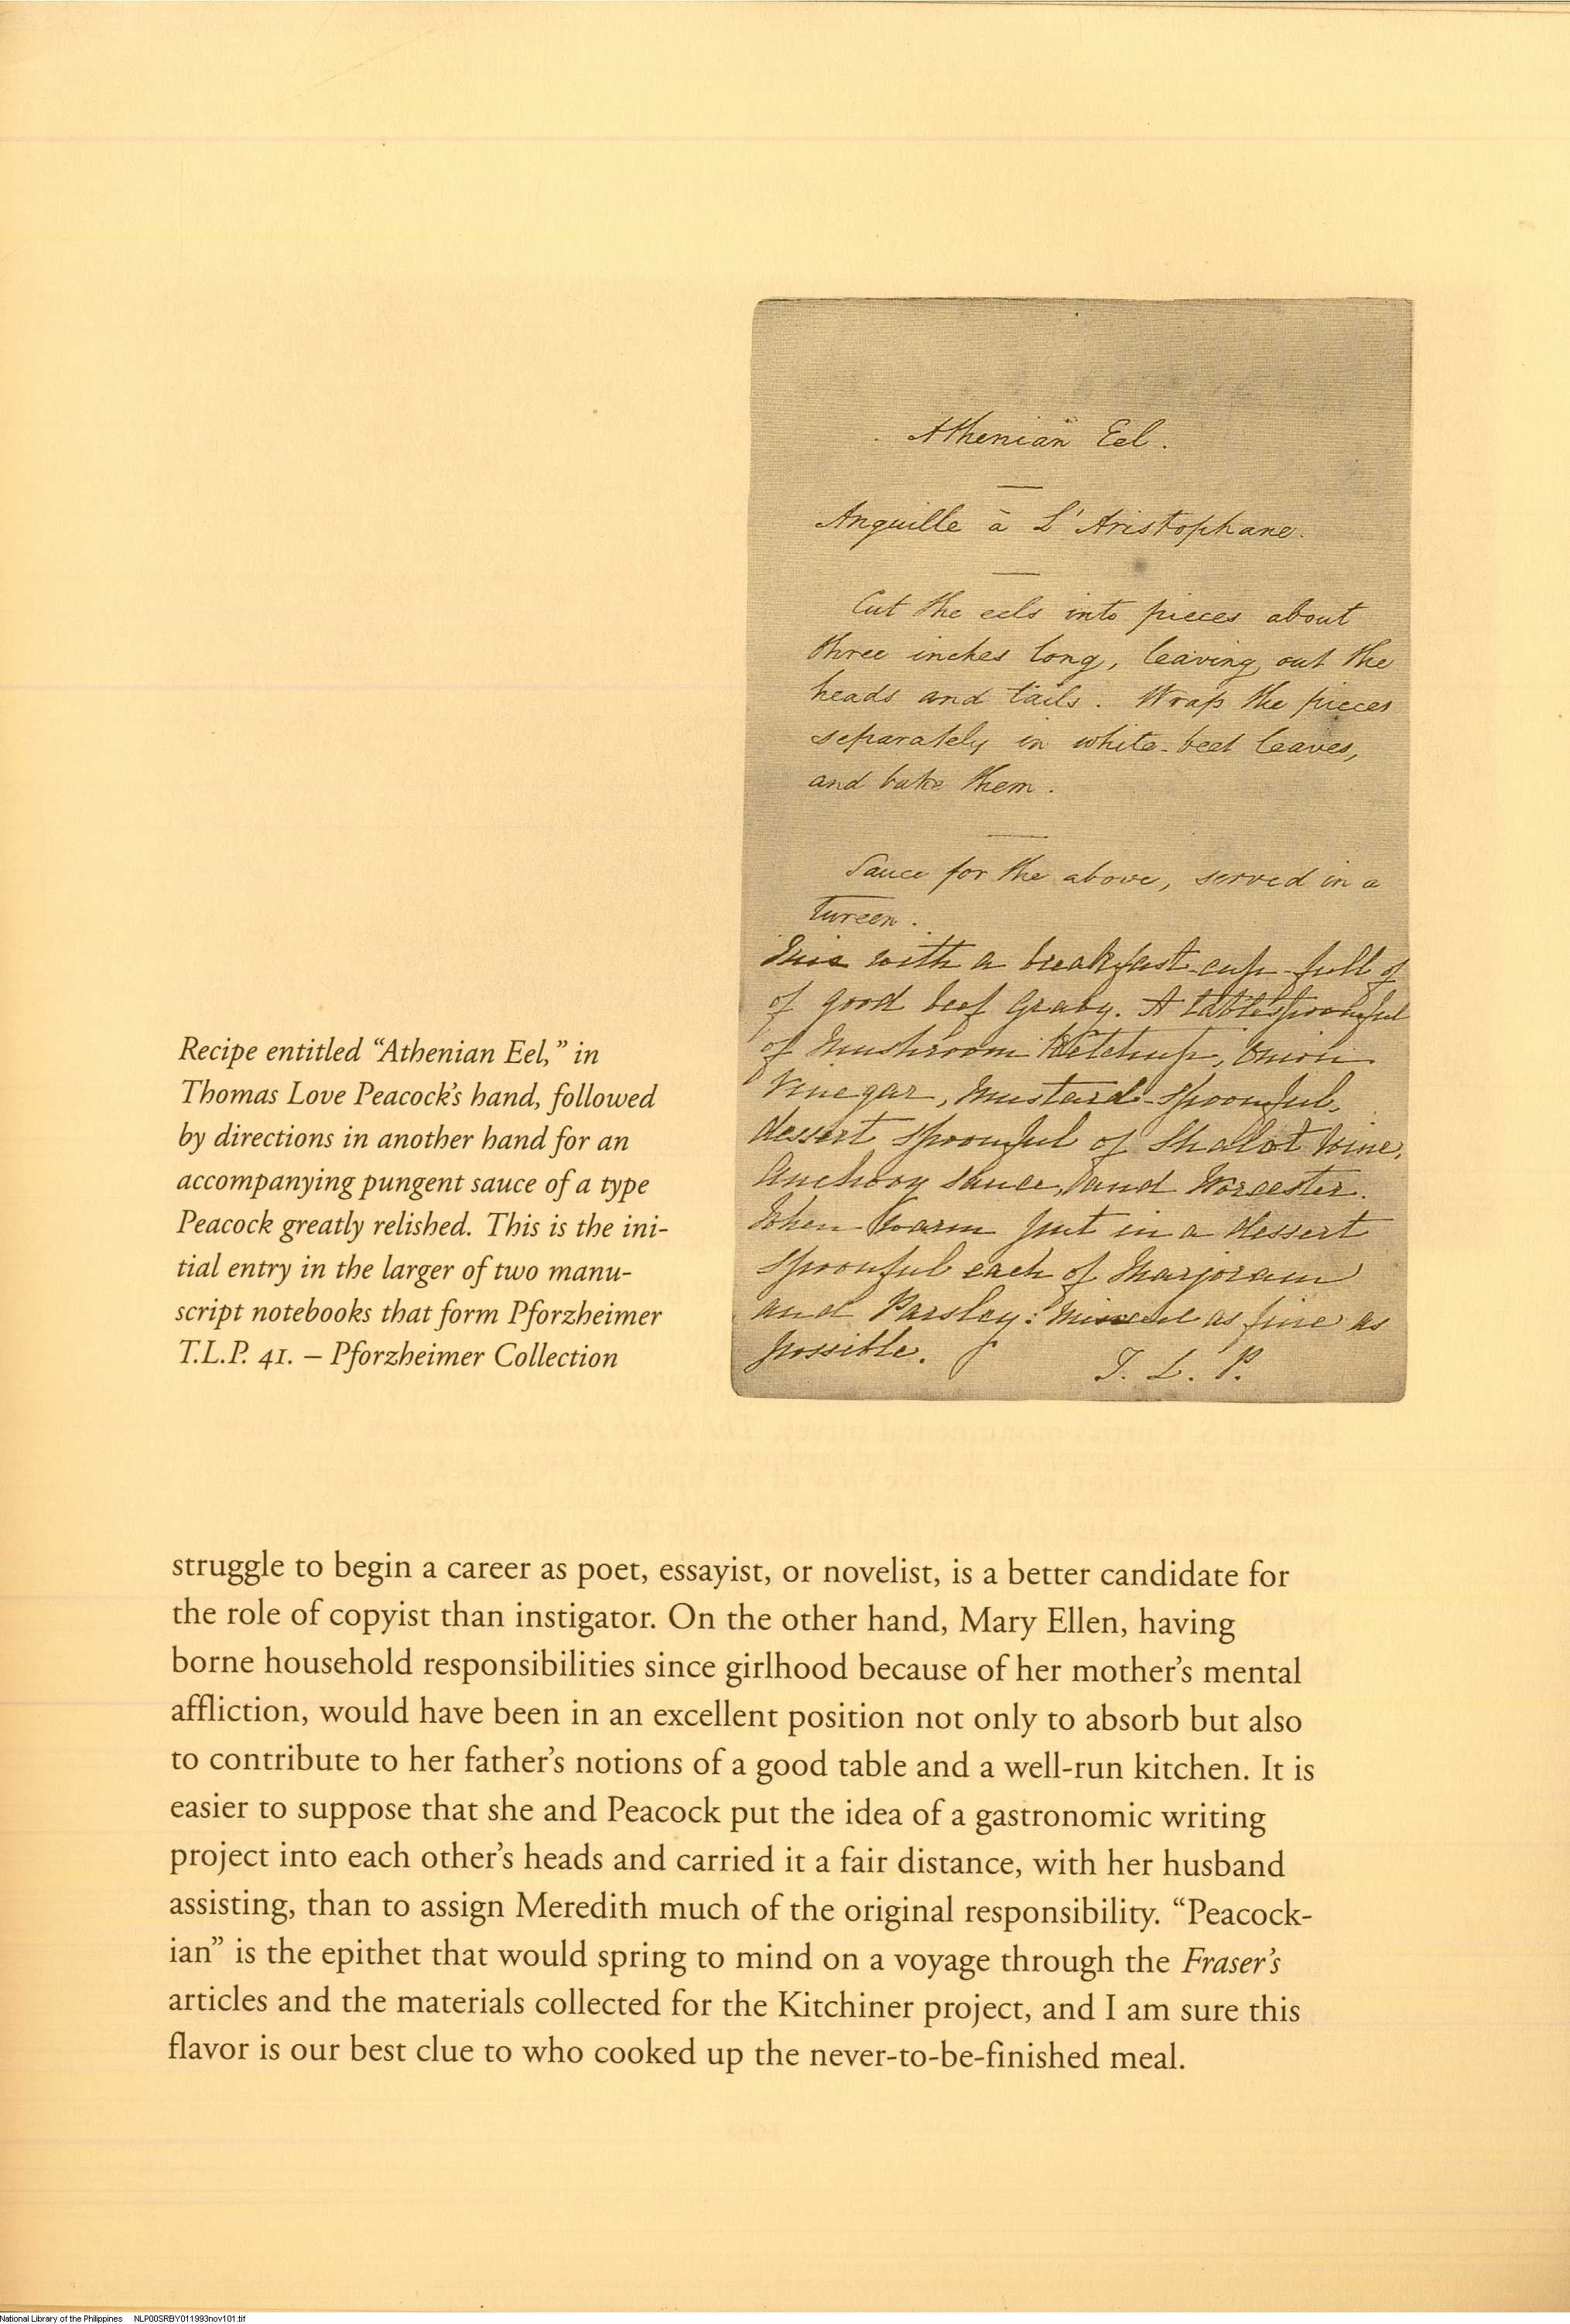 Athenian Eel.
Anguille à L'Aristophane.
Cut the eels into pieces about
three inches long, leaving out the
heads and tails. Wrap the pieces
separately in white-beet leaves,
and bake them.
Sauce for the above, served in a
Tureen.
with a breakfast-cup-full of
of good beef Gravy. A tablespoonful
of Mushroom Ketchup, Onion
Vinegar, Mustard-Spoonful,
dessert spoonful of Shalot Wine,
Anchovy Sauce, and Worcester.
When warm put in a dessert
spoonful each of Marjoram
and Parsley: Minced as fine as
possible.
T. L. P.
Recipe entitled “Athenian Eel,” in
Thomas Love Peacock's hand, followed
by directions in another hand for an
accompanying pungent sauce of a type
Peacock greatly relished. This is the ini-
tial entry in the larger of two manu-
script notebooks that form Pforzheimer
T.L.P. 41. – Pforzheimer Collection
struggle to begin a career as poet, essayist, or novelist, is a better candidate for
the role of copyist than instigator. On the other hand, Mary Ellen, having
borne household responsibilities since girlhood because of her mother's mental
affliction, would have been in an excellent position not only to absorb but also
to contribute to her father's notions of a good table and a well-run kitchen. It is
easier to suppose that she and Peacock put the idea of a gastronomic writing
project into each other's heads and carried it a fair distance, with her husband
assisting, than to assign Meredith much of the original responsibility. “Peacock-
ian” is the epithet that would spring to mind on a voyage through the Fraser's
articles and the materials collected for the Kitchiner project, and I am sure this
flavor is our best clue to who cooked up the never-to-be-finished meal.
National Library of the Philippines NLP00SRBY011993nov101.tif